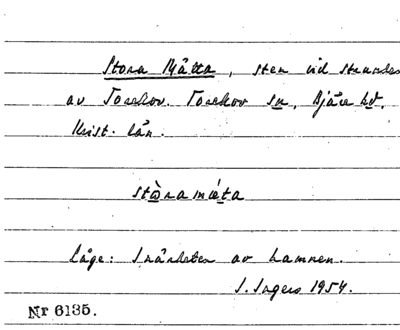 Stora Måtta, sten vid stranden
av Torekov. Torekov sn, Bjäre hd.
Krist. län.
stòramæta
Läge: I närheten av hamnen.
I. Ingers 1954.
Nr 6135.